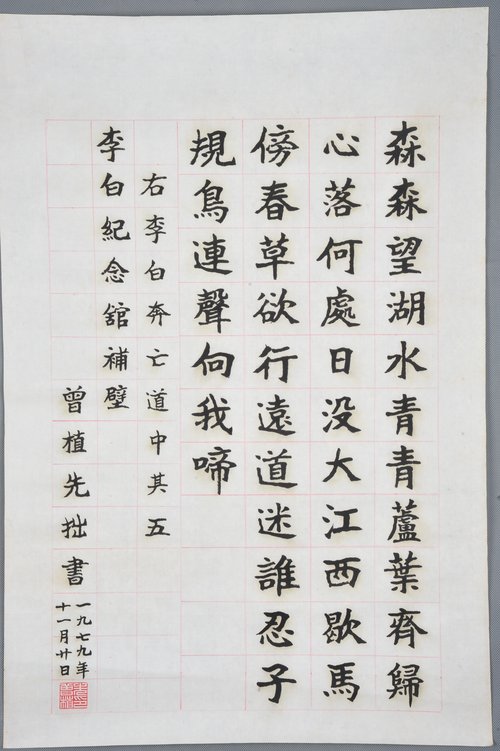 森森望湖水青青蘆葉齊歸
心落何處日没大江西歇馬
傍春草欲行遠道迷誰忍子
規鳥連聲向我啼
右李白奔亡道中其五
李白紀念舘補壁
曾植先拙書
一九七九年
十一月廿日